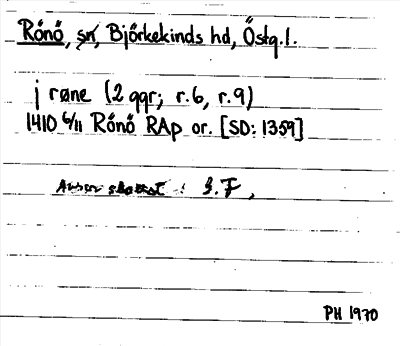 Rönö, sn, Björkekinds hd, Östg.l.
j røne (2 ggr; r.6, r.9)
1410 6/11 Rönö RAp or. [SD: 1359]
J. F,
PH 1970